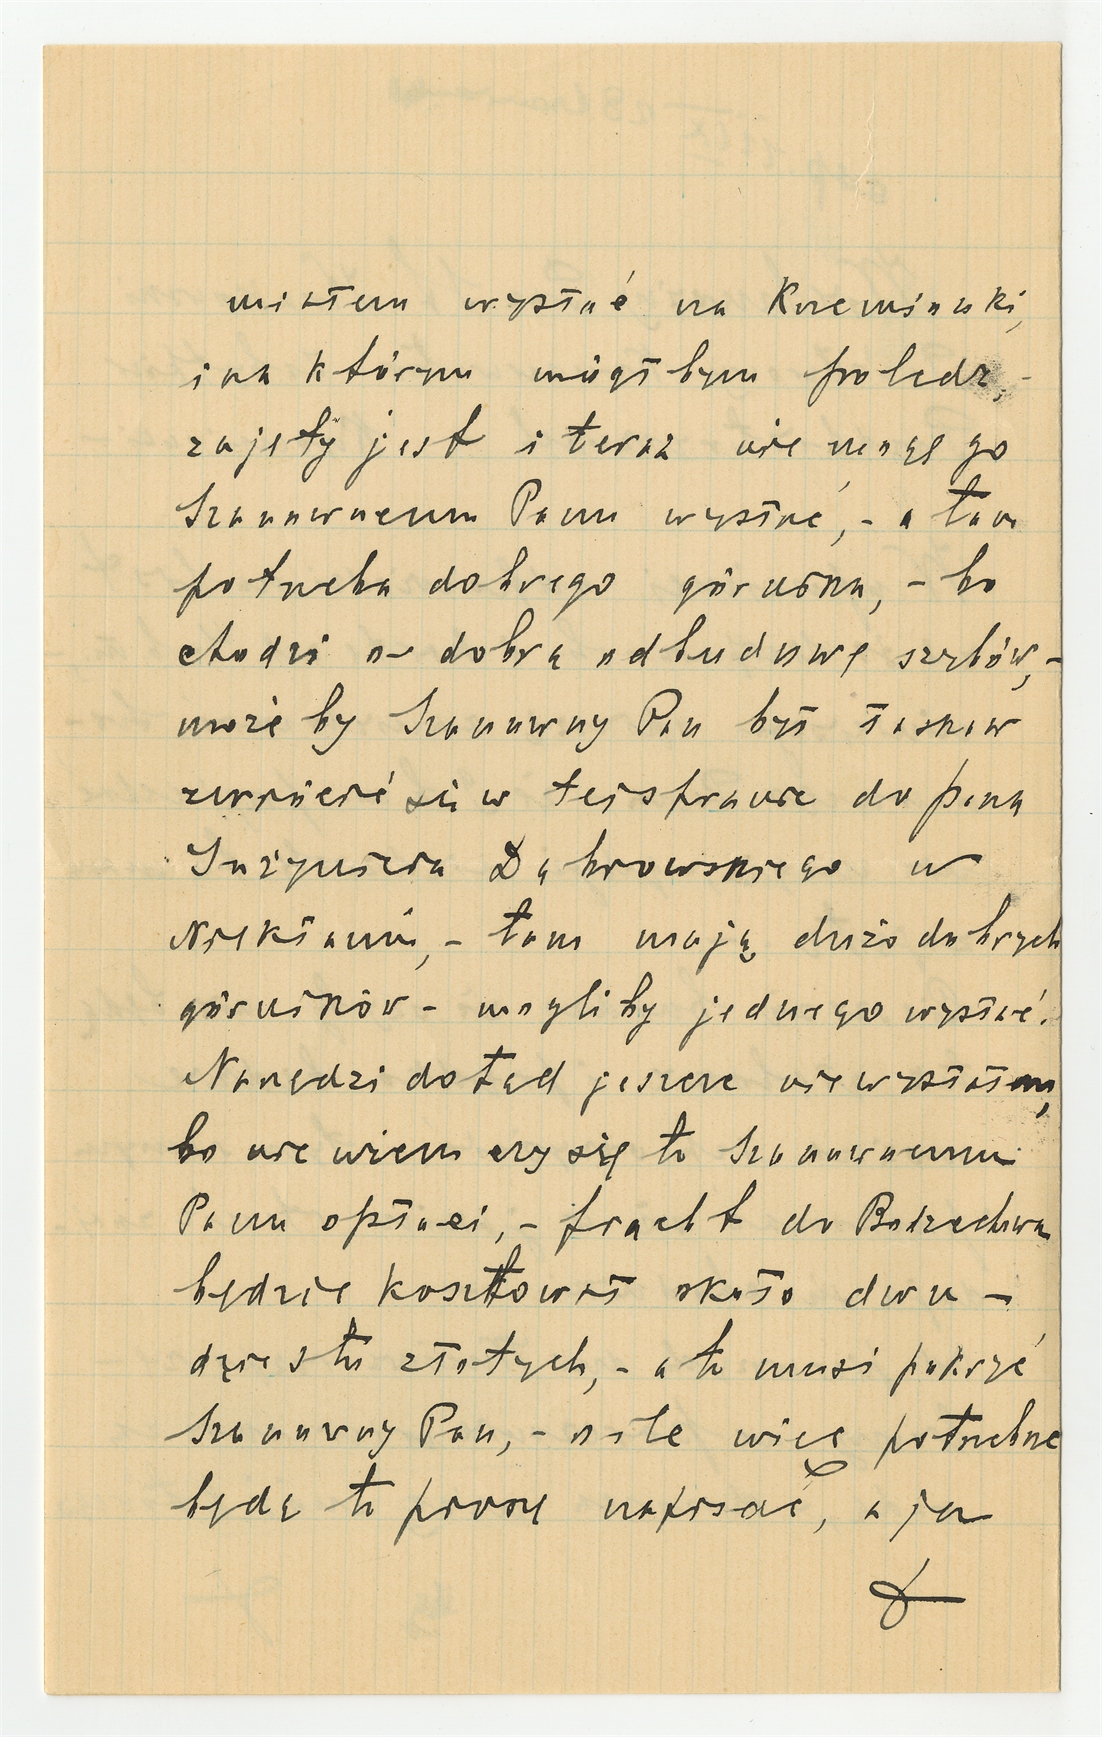 miałem wysłać na Krzemionki,
i na którym mógłbym poledz, -
zajęty jest i teraz nie mogę go
Szanownemu Panu wysłać, - a tam
potrzeba dobrego górnika, - bo
chodzi o dobrą odbudowę szybów, -
może by Szanowny Pan był łaskaw
zwrócić się w tej sprawie do pana
Inżyniera Dąbrowskiego w
Niekłaniu, - tam mają dużo dobrych
górników - mogliby jednego wysłać.
Narzędzi dotąd jeszcze nie wysłałem,
bo nie wiem czy się to Szanownemu
Panu opłaci, - fracht do Bodzechowa
będzie kosztował około dwu -
dziestu złotych, - a to musi pokryć
Szanowny Pan, - o ile więc potrzebne
będą to proszę napisać, a ja